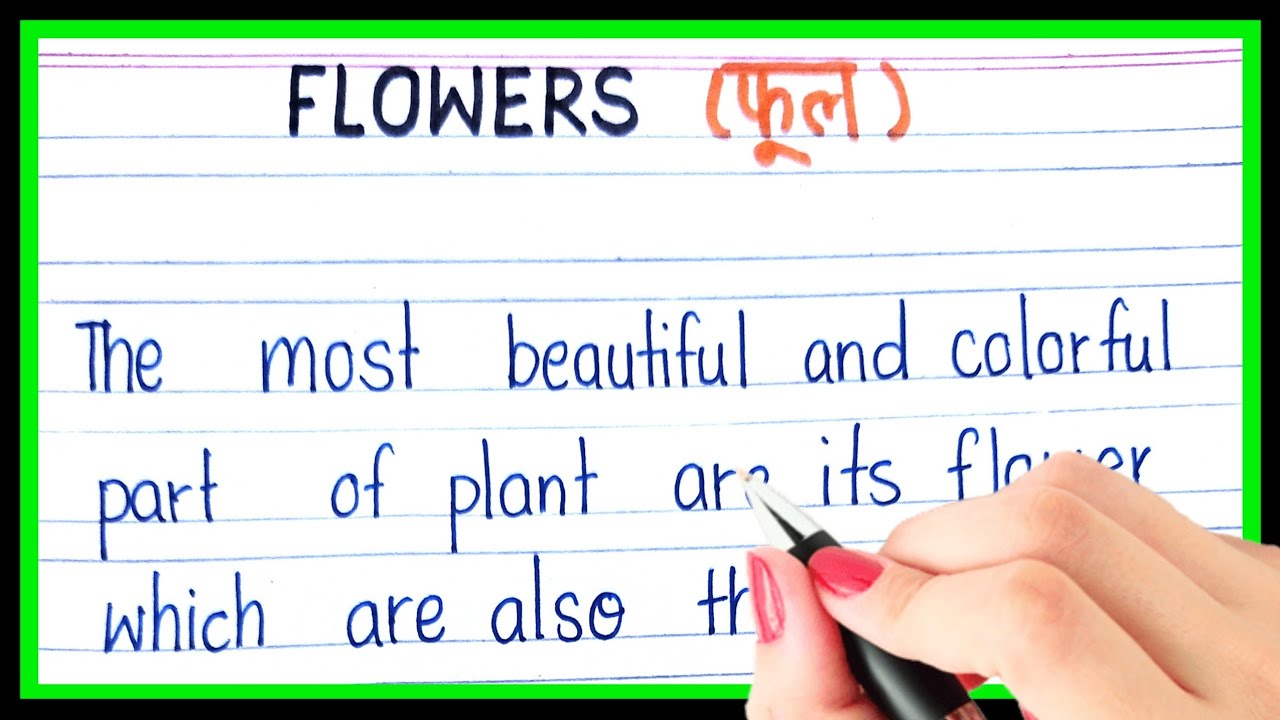 FLOWERS (फूल)
The most beautiful and colorful
part of plant are its flower
which are also